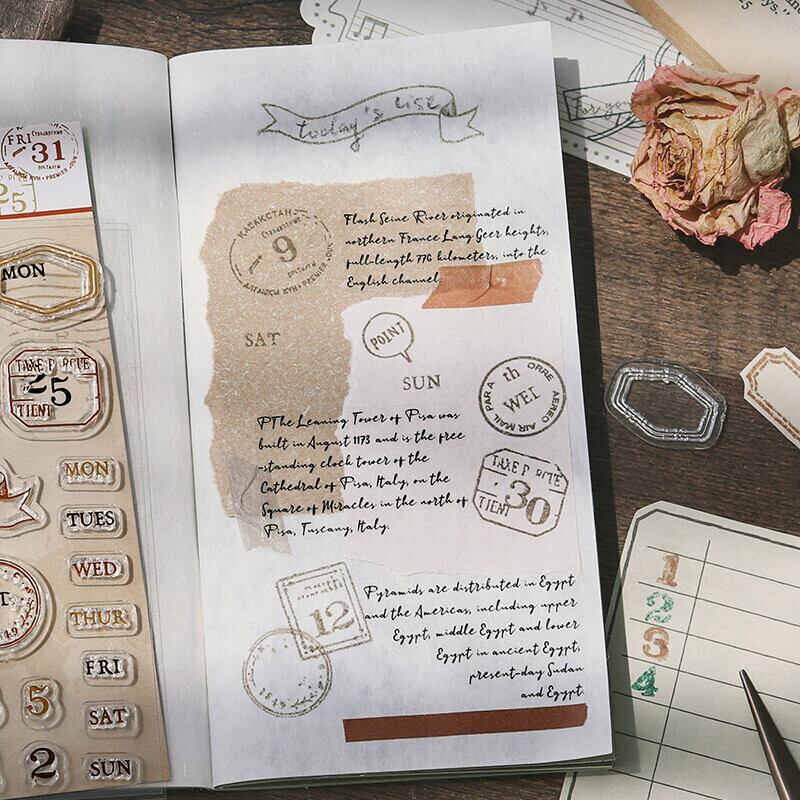 today's list
КАЗАКСТАН
9
АЛГАШКЫ КУН · PREMIER · JOUR
Flash Seine River originated in
northern France Lang Geer heights,
full-length 776 kilometers, into the
English channel.
SAT
POINT
SUN
PAR A
ORRE
AEREO
AIR MAIL
th
WEI
PThe Leaning Tower of Pisa was
built in August 1173 and is the free
-standing clock tower of the
Cathedral of Pisa, Italy, on the
Square of Miracles in the north of
Pisa, Tuscany, Italy.
30
TIENT
th
12
Pyramids are distributed in Egypt
and the Americas, including upper
Egypt, middle Egypt and lower
Egypt in ancient Egypt,
present-day Sudan
and Egypt.
FRI
31
25
MON
25
TIENT
MON
TUES
WED
THUR
FRI
SAT
SUN
5
2
for you
1
2
3
4